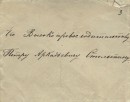 Его Высокопревосходительству
Петру Аркадьевичу Столыпину